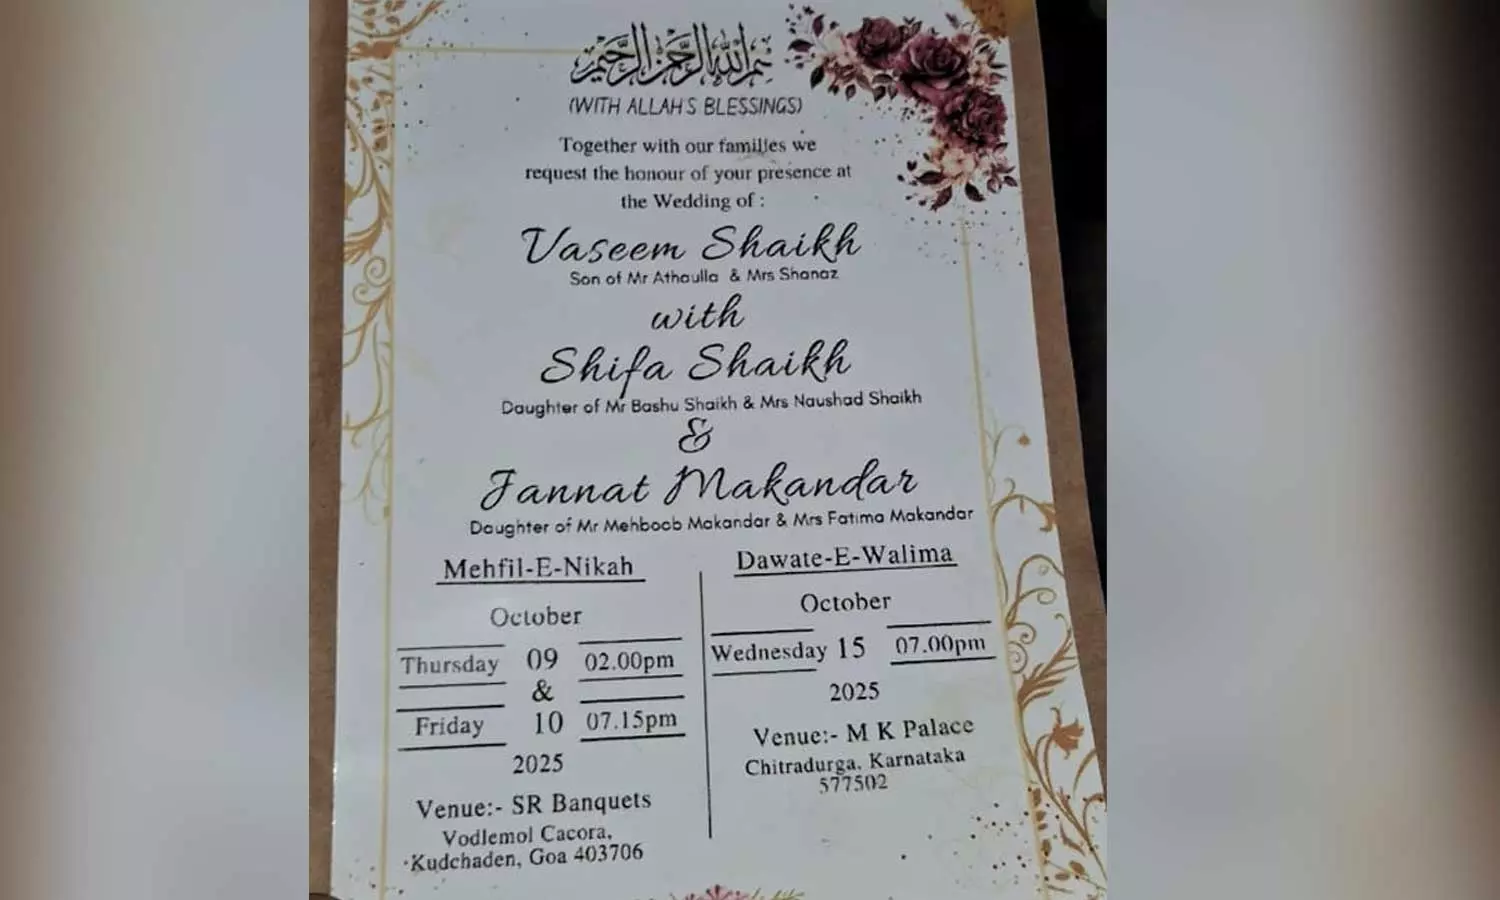 بسم الله الرحمن الرحيم
(WITH ALLAH'S BLESSINGS)
Together with our families we
request the honour of your presence at
the Wedding of :
Vaseem Shaikh
Son of Mr Athaulla & Mrs Shanaz
with
Shifa Shaikh
Daughter of Mr Bashu Shaikh & Mrs Naushad Shaikh
&
Jannat Makandar
Daughter of Mr Mehboob Makandar & Mrs Fatima Makandar
Mehfil-E-Nikah
October
Thursday 09 02.00pm
&
Friday 10 07.15pm
2025
Venue:- SR Banquets
Vodlemol Cacora,
Kudchaden, Goa 403706
Dawate-E-Walima
October
Wednesday 15 07.00pm
2025
Venue:- M K Palace
Chitradurga, Karnataka
577502